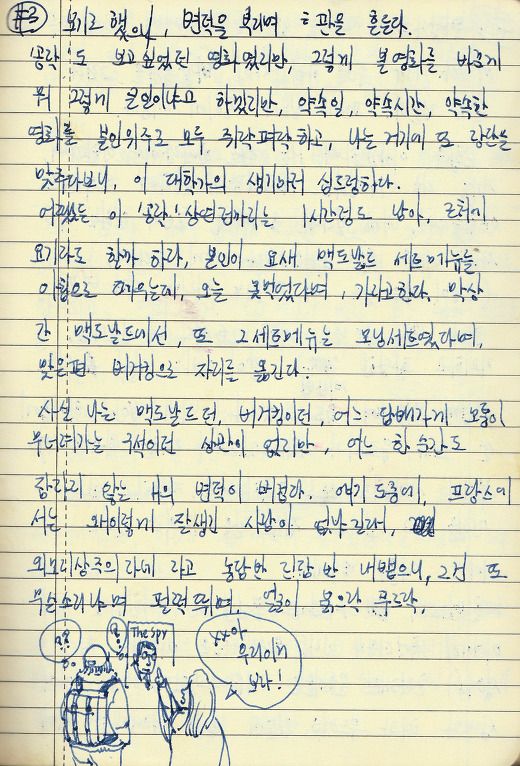 #3 보기로 했으나, 변덕을 부리며 판을 흔들다.
'공락'도 보고싶었던 영화였지만, 그렇게 볼영화를 바꾸게
뭐 그렇게 본인이냐고 하겠지만, 약속일, 약속시간, 약속한
영화를 본인위주로 모두 쥐락펴락하고, 나는 거기에 또 장단을
맞추다보니, 이 대학가의 생기마저 심드렁하다.
어쨌든 이 '공락' 상연전까지는 1시간정도 남아, 근처에
요기라도 할까 하다, 본인이 요새 맥도날드 세트메뉴를
아침으로 때우는데, 오늘 못먹었다며, 가자고한다. 막상
간 맥도날드에선, 또 그세트메뉴는 모닝세트였다며,
맞은편 버거킹으로 자리를 옮긴다.
사실 나는 맥도날드던, 버거킹이던, 어느 담배가게 모퉁이
무너져가는 구석이던 상관이 없지만, 어느 한순간도
않는 H의 변덕이 버겁다. 얘기 도중에, 프랑스에
서는 왜이렇게 잘생긴 사람이
외모지상주의라네 라고 농담반 진담 반 내뱉으니, 그건 또
무슨소리냐며 펄쩍뛰며, 얼굴이 붉으락 푸르락.
The SPY
XX아
우리이거
보자!